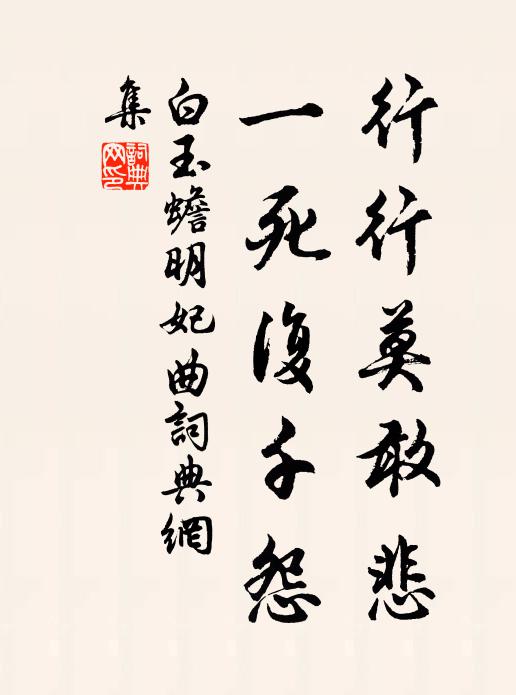 行行莫敢悲
一死復千怨
白玉蟾明妃曲詞典網
集
詞典
网印